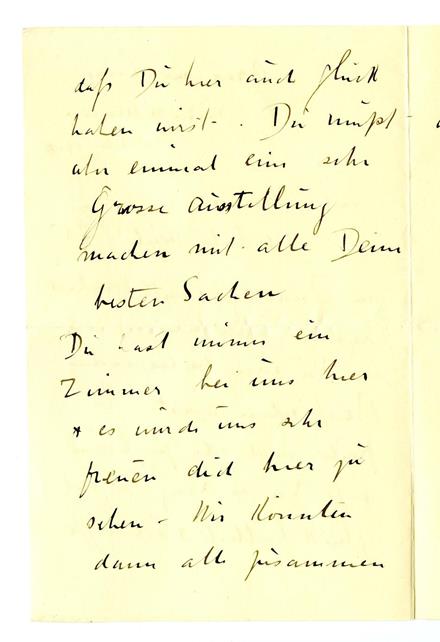 daß Du hier auch Glück
haben wirst. Du mußt
aber einmal eine sehr
Grosse Ausstellung
machen mit alle Deine
besten Sachen
Du hast immer ein
Zimmer bei uns hier
+ es würde uns sehr
freuen dich hier zu
sehen - Wir Könnten
dann alle zusammen